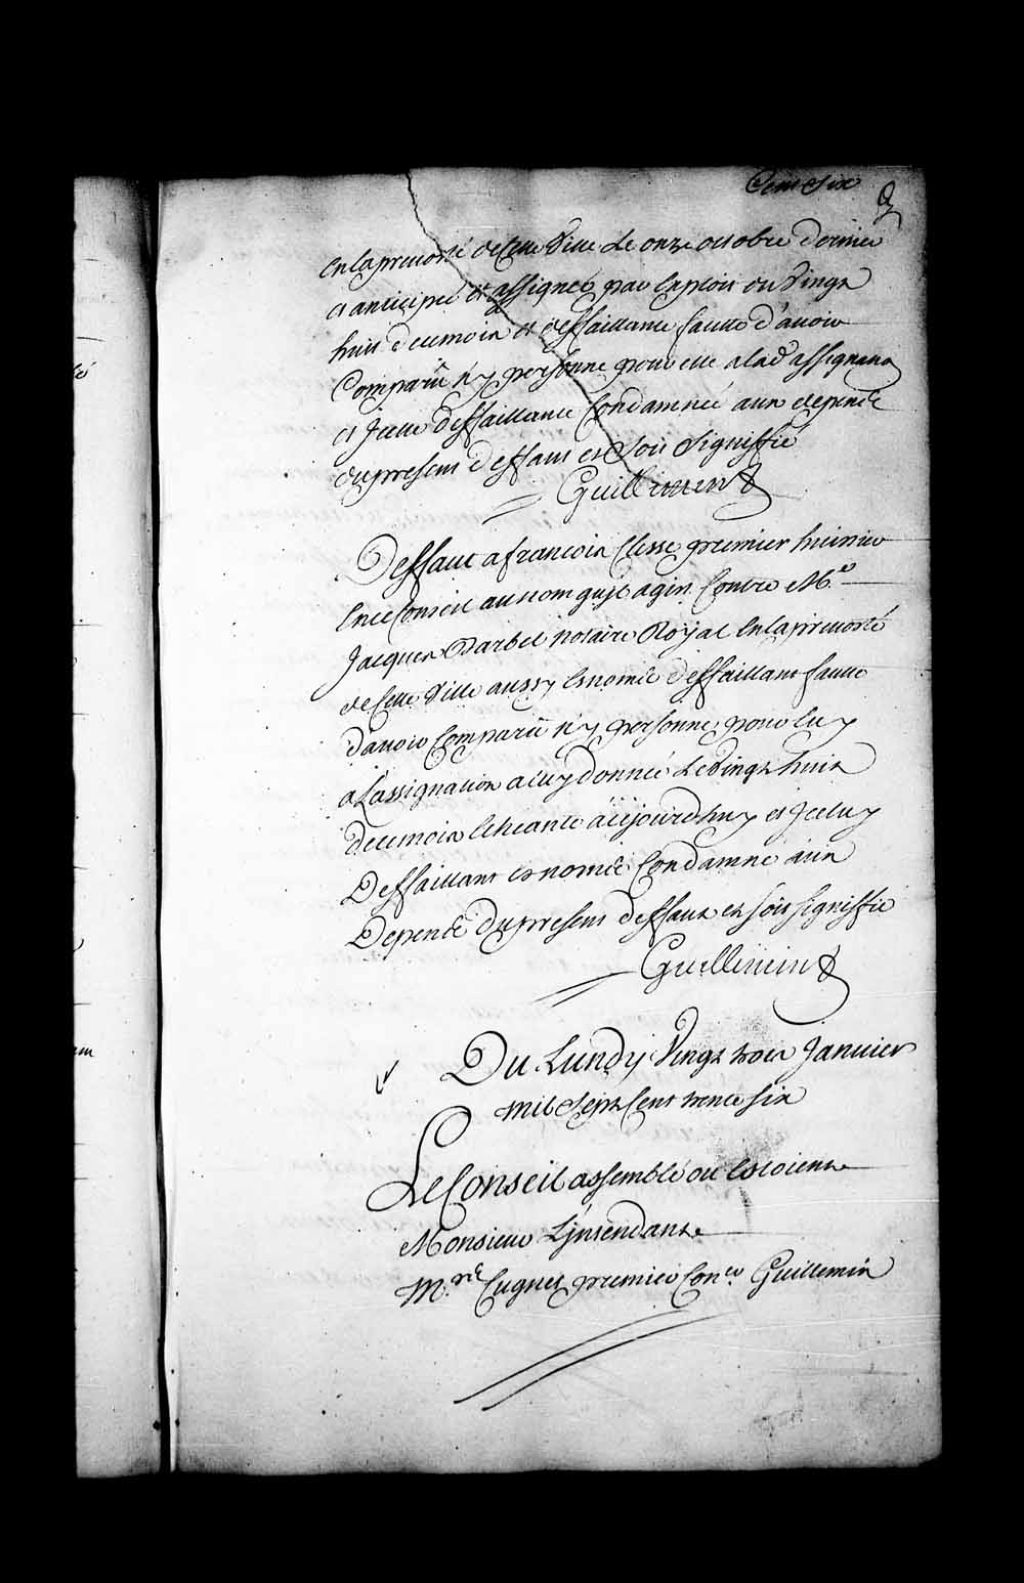 Cent Six
en la prevosté de cette Ville le onze octobre dernier
et anticipée et assignée par exploit du Vingt
huit de ce mois et deffaillante faute d'avoir
Comparü n'y personne pour elle a lad^e assignaon
et Jcelle deffaillante Condamnée aux depens
du present deffaut et Soit Signiffié
Guillimin
Deffaut a francois Clesse premier huissier
en ce Conseil au nom qu'jl agit Contre M^e
Jacques Barbel notaire Royal en la prevosté
de cette Ville aussy es nom deffaillant faute
d'avoir Comparü n'y personne pour luy
a L'assignation a luy donnée Le Vingt huit
de ce mois Echeante aüjourd'huy et Jceluy
Deffaillant es nom Condamné aux
Depens du present deffaut et soit signiffié
Guillimin
Du Lundy Vingt trois Janvier
mil Sept Cent trente six
Le Conseil assemblé ou Estoient
Monsieur L'jntendant
M^re Cugnet premier Con^er Guillimin